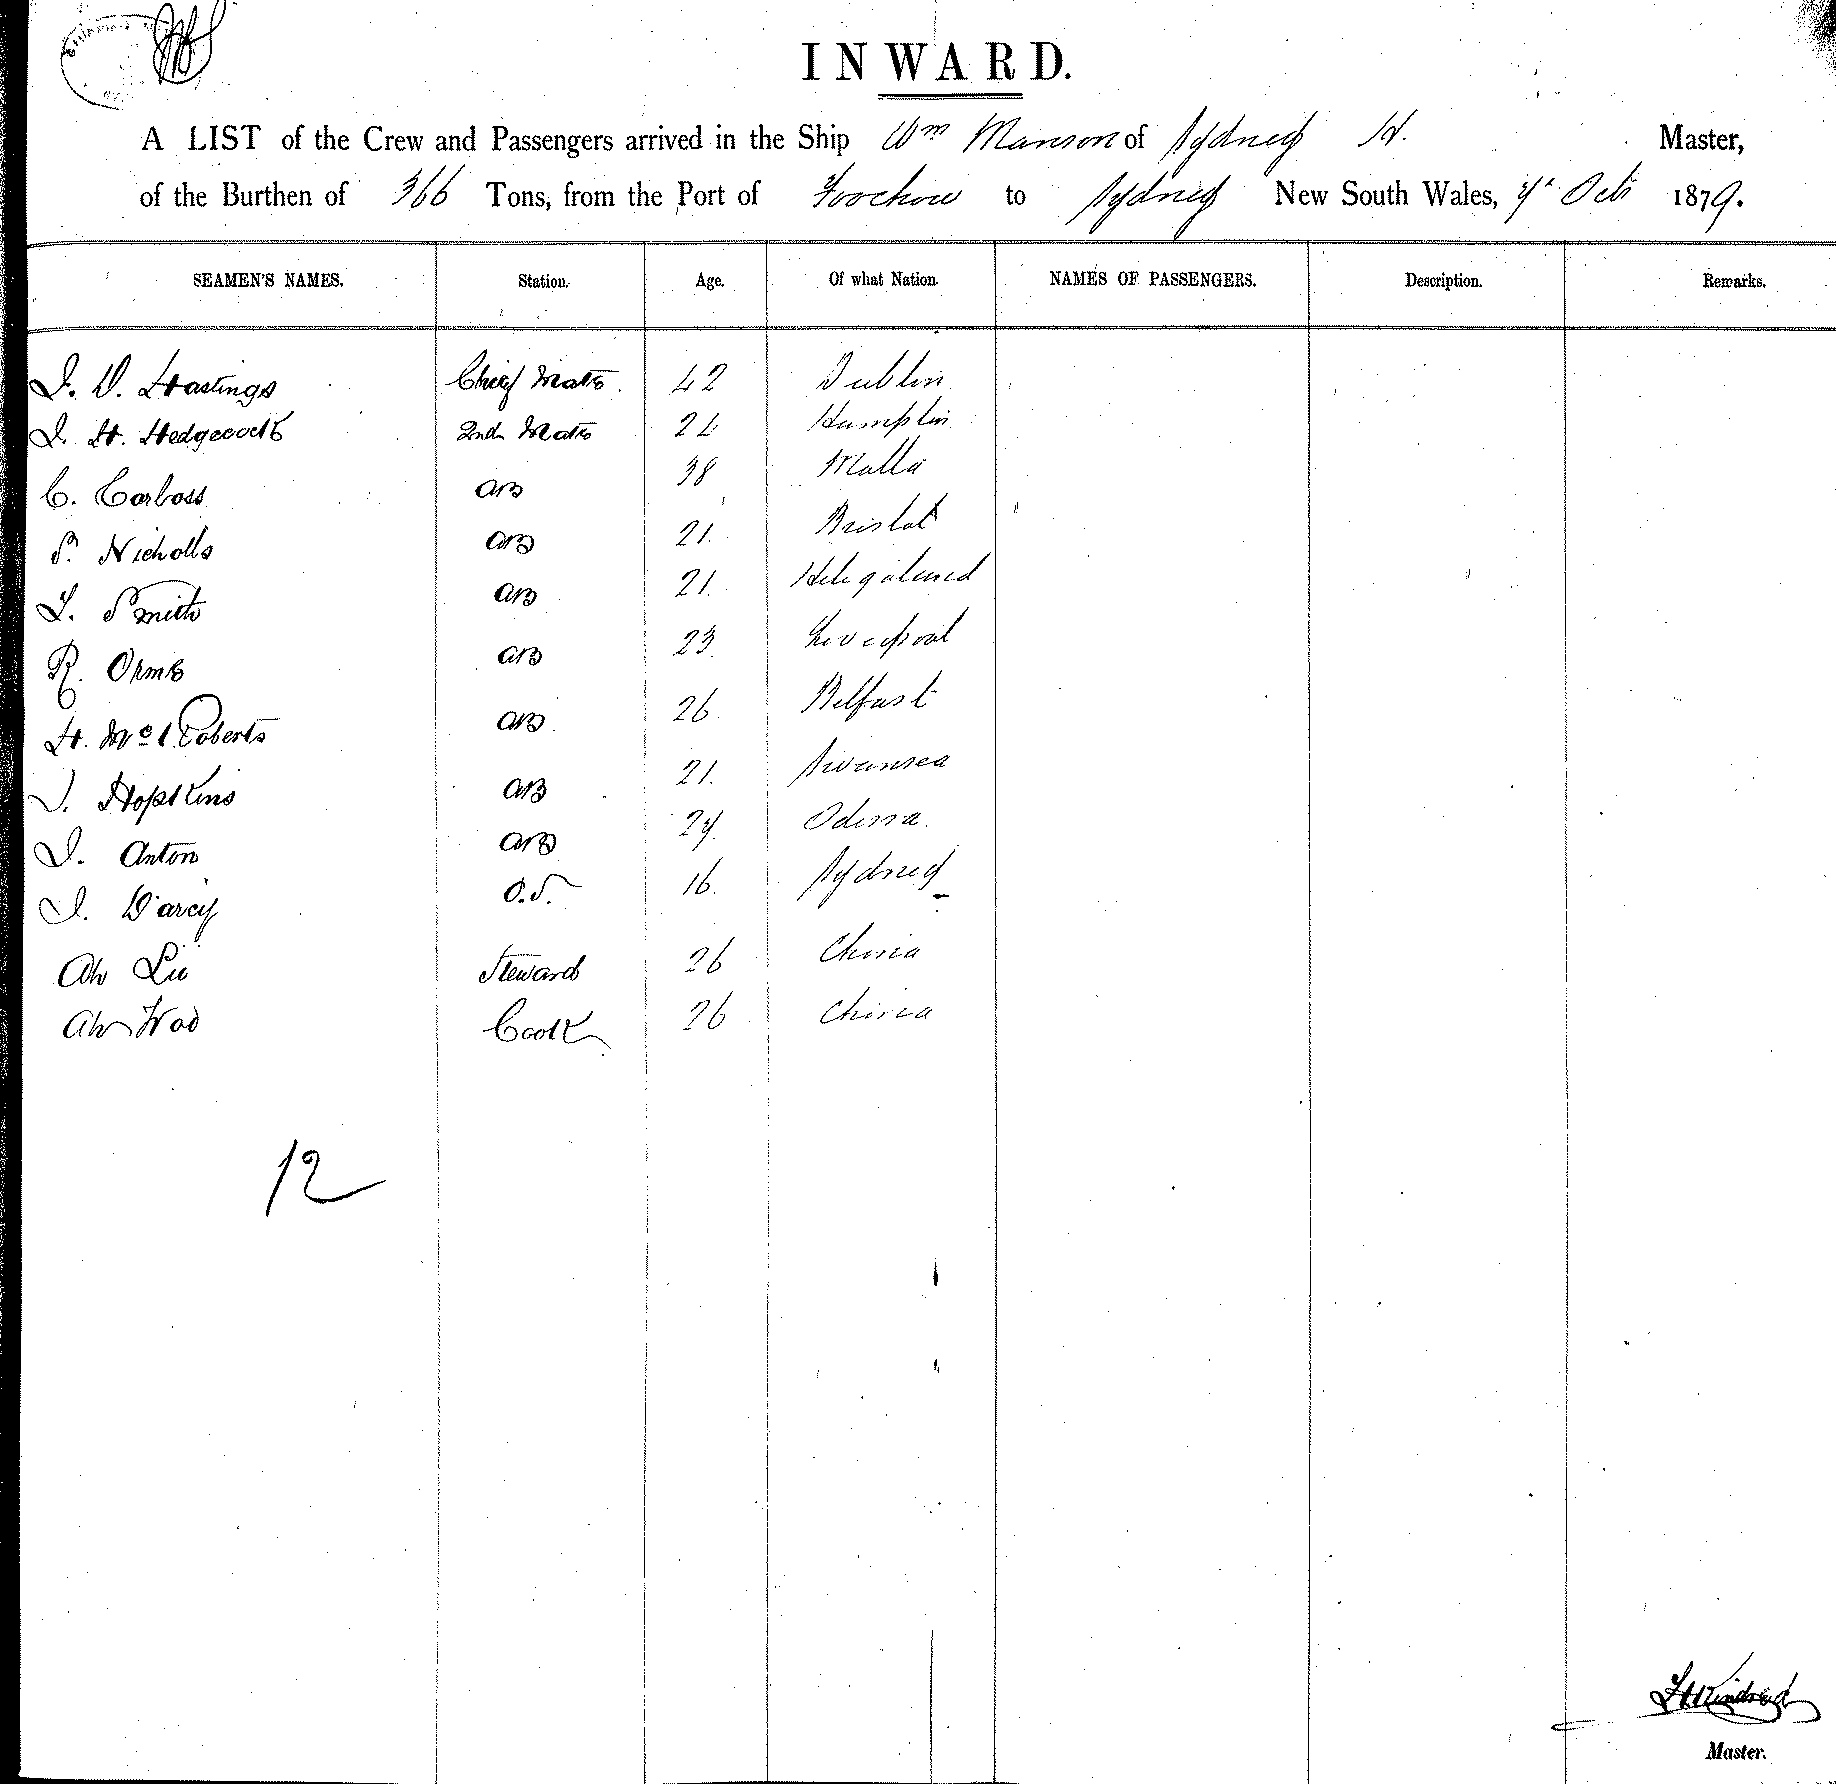 INWARD.
A LIST of the Crew and Passengers arrived in the Ship Wm Manson of Sydney H. Master,
of the Burthen of 366 Tons, from the Port of Foochow to Sydney New South Wales, Oct 1879.
SEAMEN'S NAMES. Station. Age. Of what Nation. NAMES OF PASSENGERS. Description. Remarks.
J. D. Hastings Chief Mate 42 Dublin
J. H. Hedgecock 2nd Mate 24 Hamplin
C. Carboss AB 38 Malta
S. Nicholls AB 21. Bristol
L. Smith AB 21. Heligoland
R. Orme AB 23 Liverpool
H. McRoberts AB 26 Belfast
J. Hopkins AB 21. Swansea
J. Anton AB 27 Odessa.
J. D'arcy O.S. 16. Sydney
Ah Lu Steward 26 China
Ah Woo Cook 26 China
12
Kindred
Master.